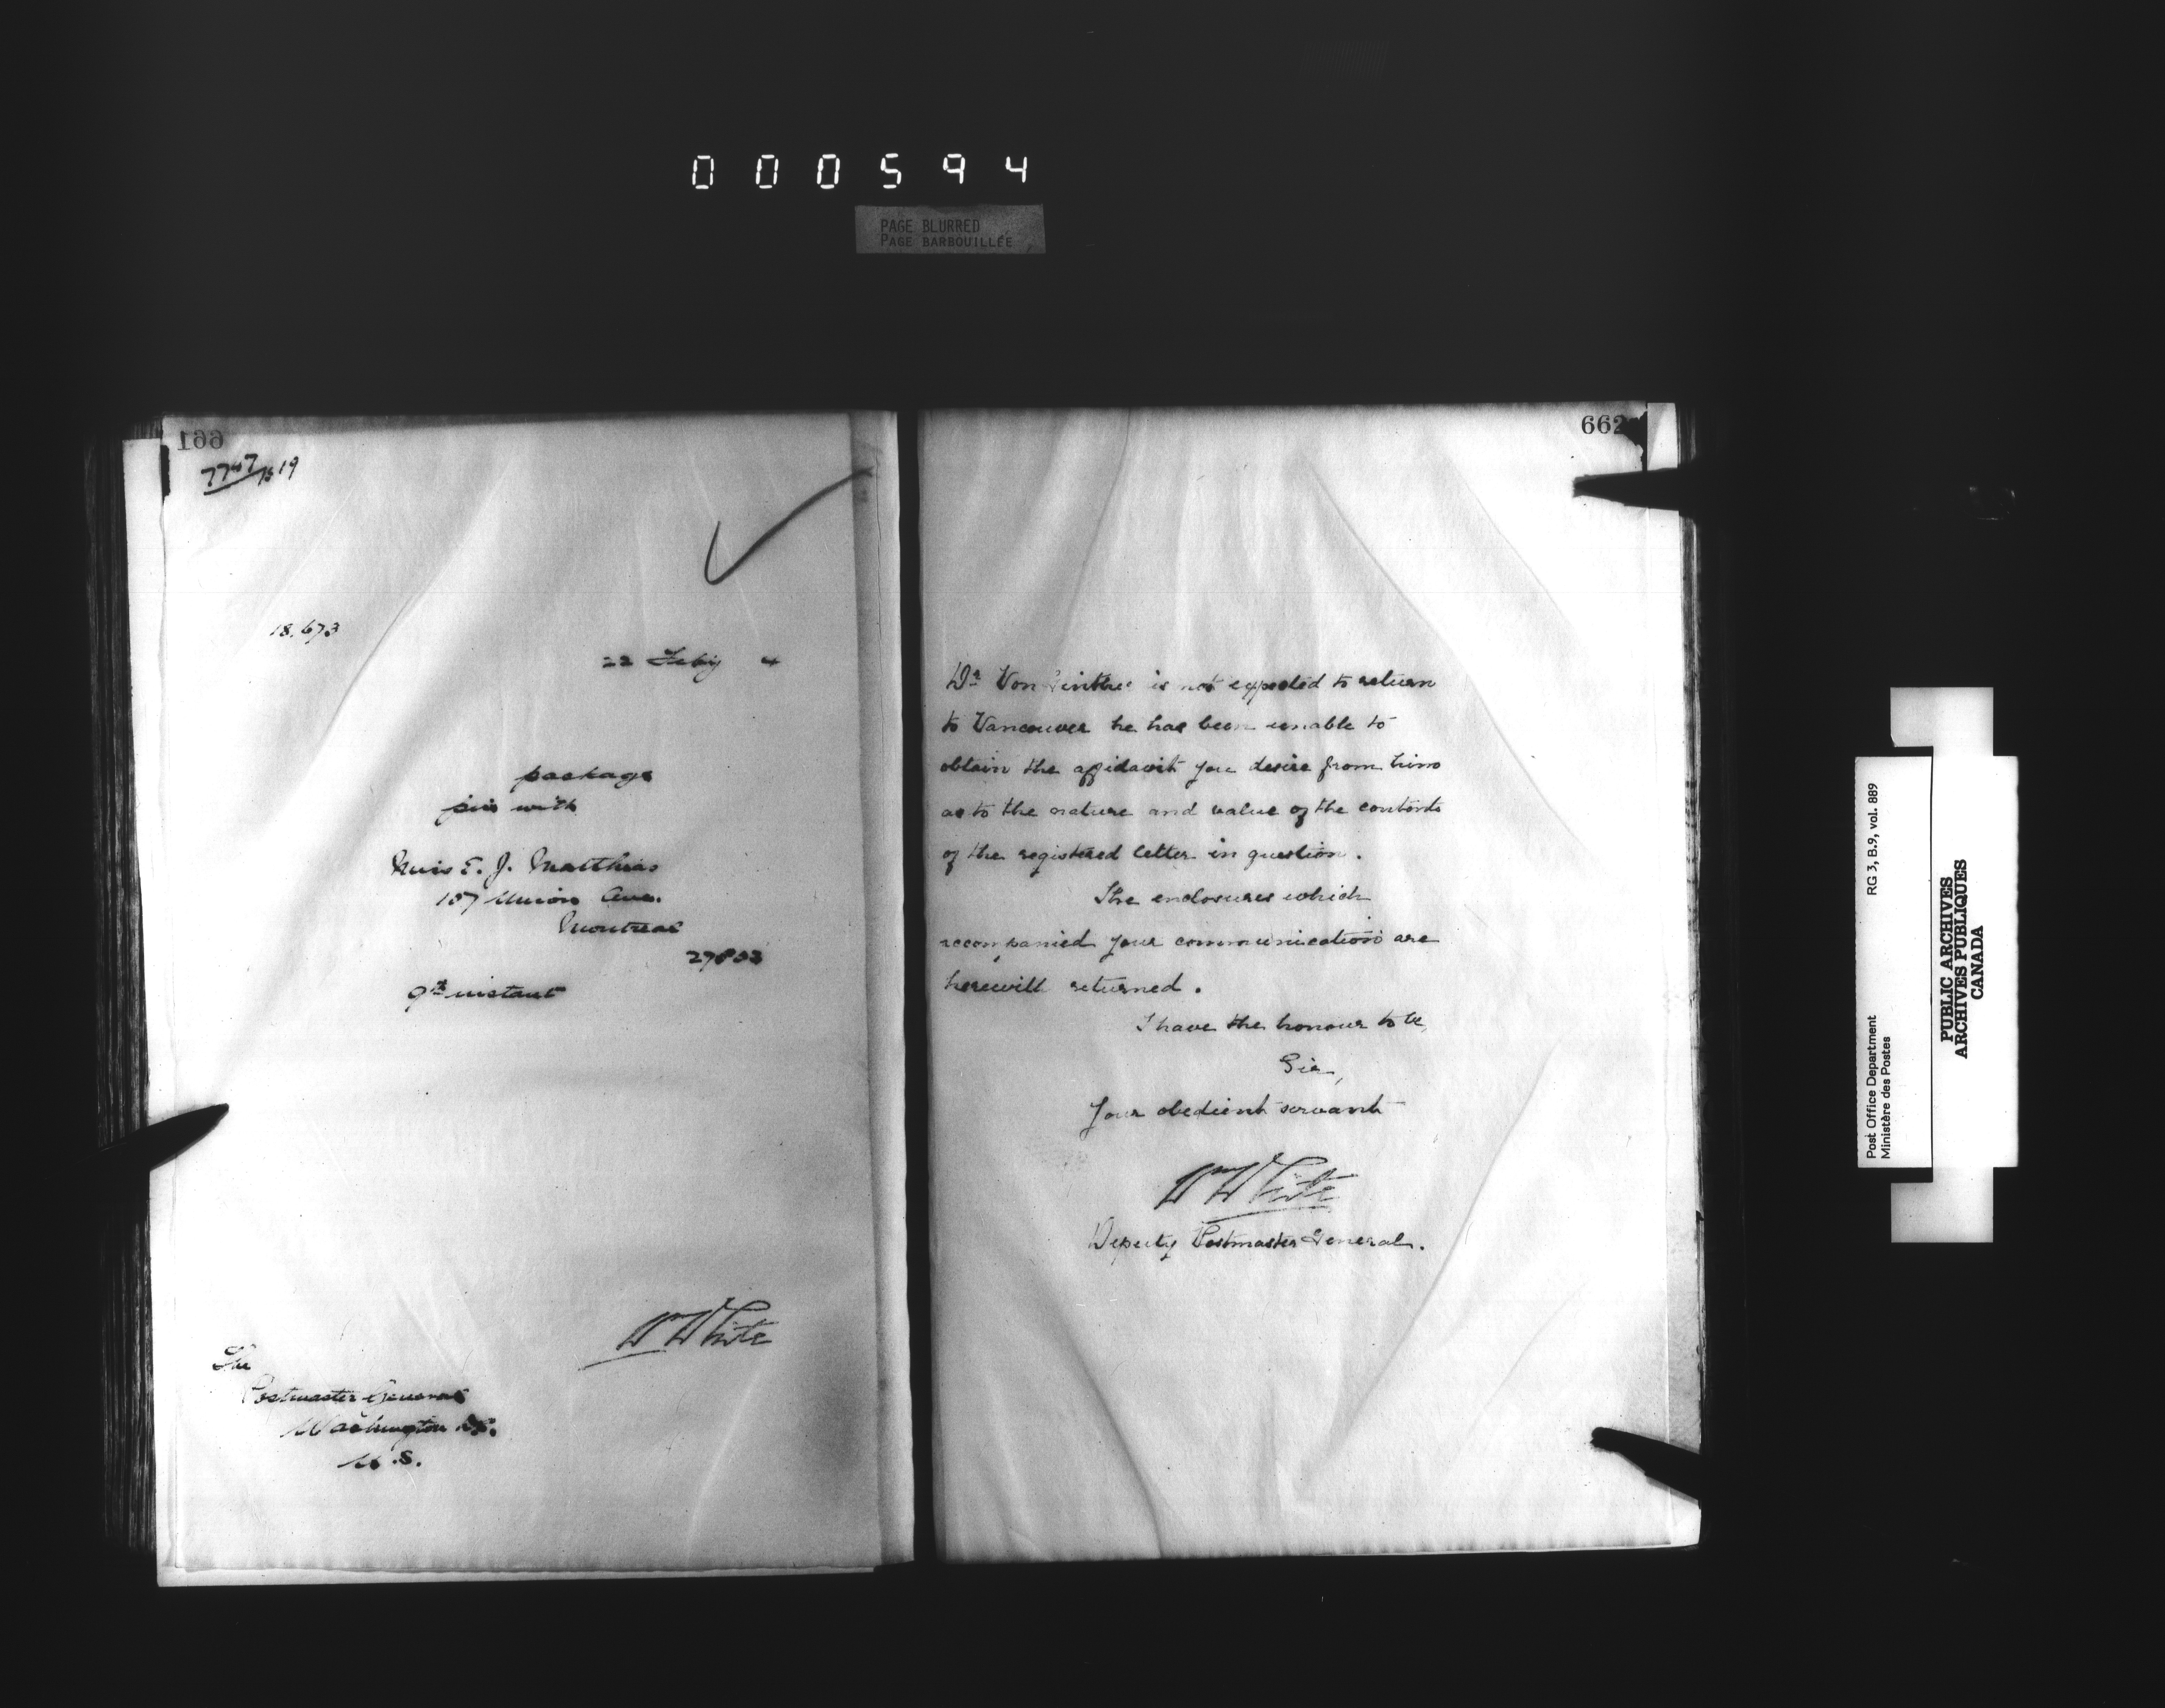 000594
PAGE BLURRED
PAGE BARBOUILLÉE
661
18,673
22 Feby 4
package
with
Miss E. J. Matthias
157 Union Ave.
Montreal
9th instant
Wm White
The
Postmaster General
Washington D.C.
U.S.
662
Dr Von is not expected to return
to Vancouver he has been unable to
obtain the affidavit you desire from him
as to the nature and value of the contents
of the registered letter in question.
The enclosures which
accompanied your communication are
herewith returned.
I have the honour to be,
Sir,
Your obedient servant
Wm White
Deputy Postmaster General.
Post Office Department RG 3, B.9, vol. 889
Ministère des Postes
PUBLIC ARCHIVES
ARCHIVES PUBLIQUES
CANADA